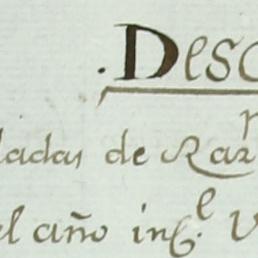 . Desc
ladas de Rar
el año ing.l V